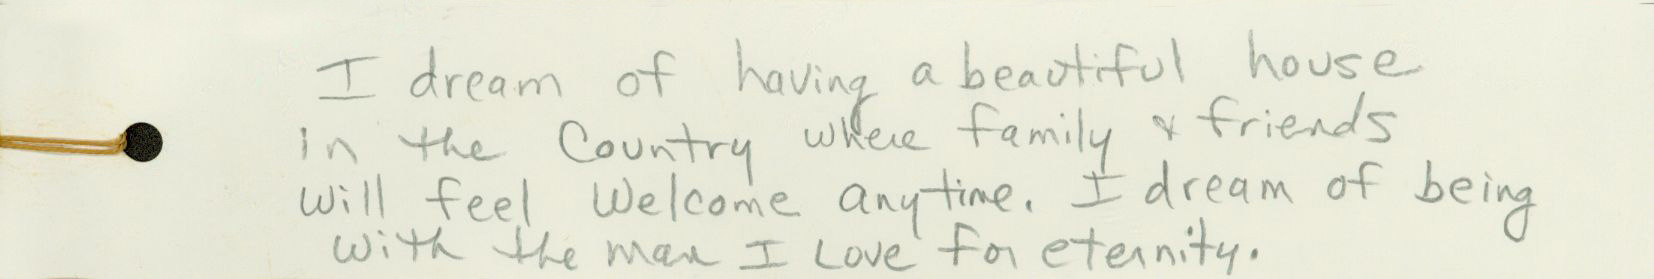 I dream of having a beautiful house
in the Country where family & friends
will feel Welcome anytime. I dream of being
with the man I Love for eternity.